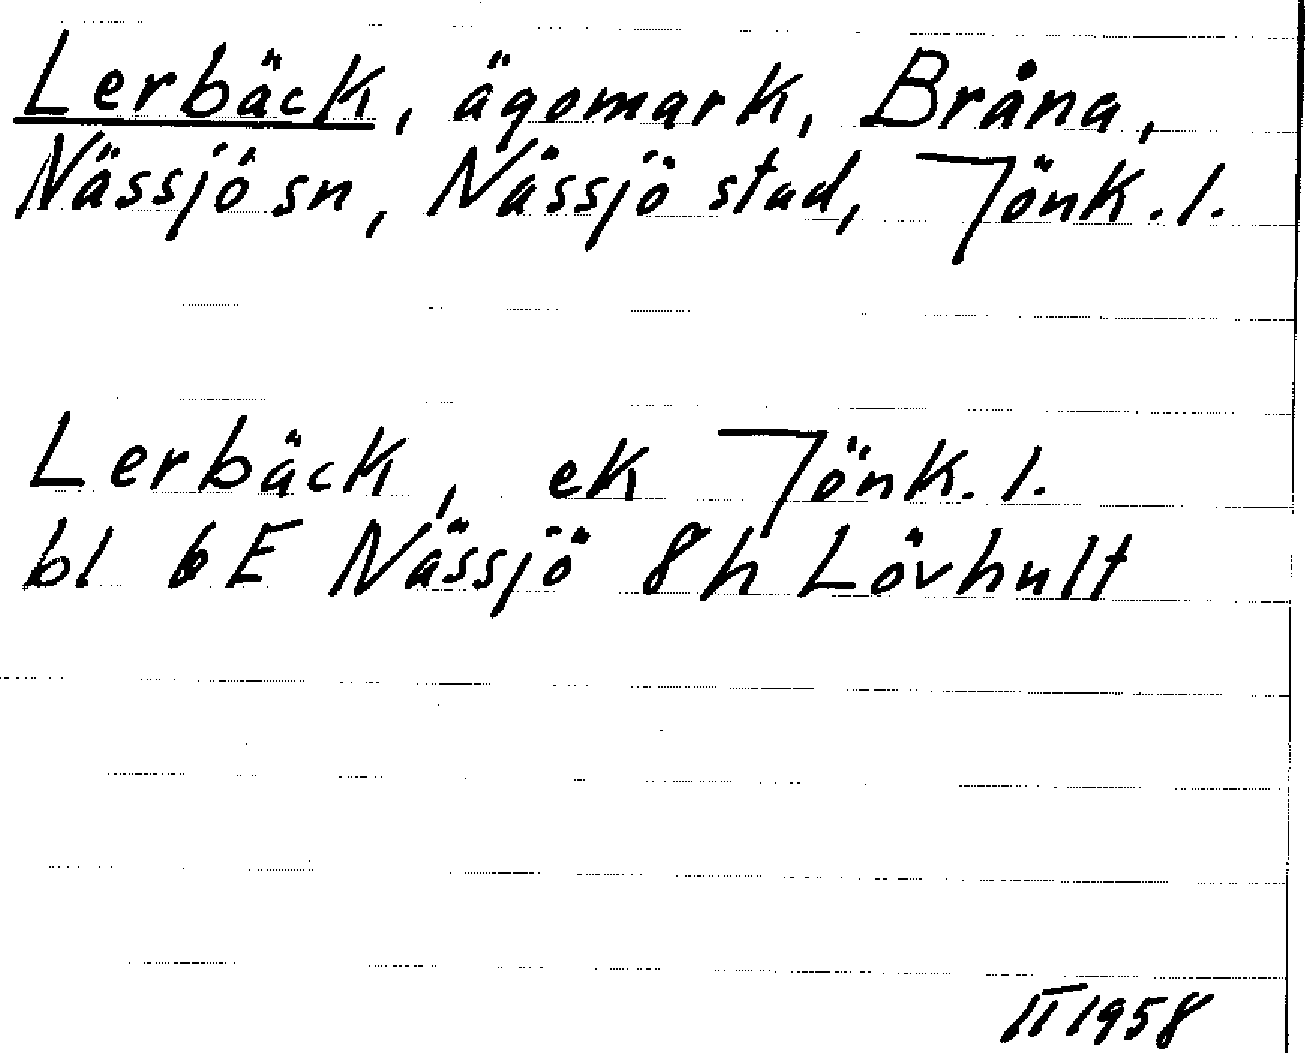 Lerbäck, ägomark, Bråna,
Nässjö sn, Nässjö stad, Jönk. l.
Lerbäck, ek Jönk. l.
bl 6E Nässjö 8h Lövhult
II 1958